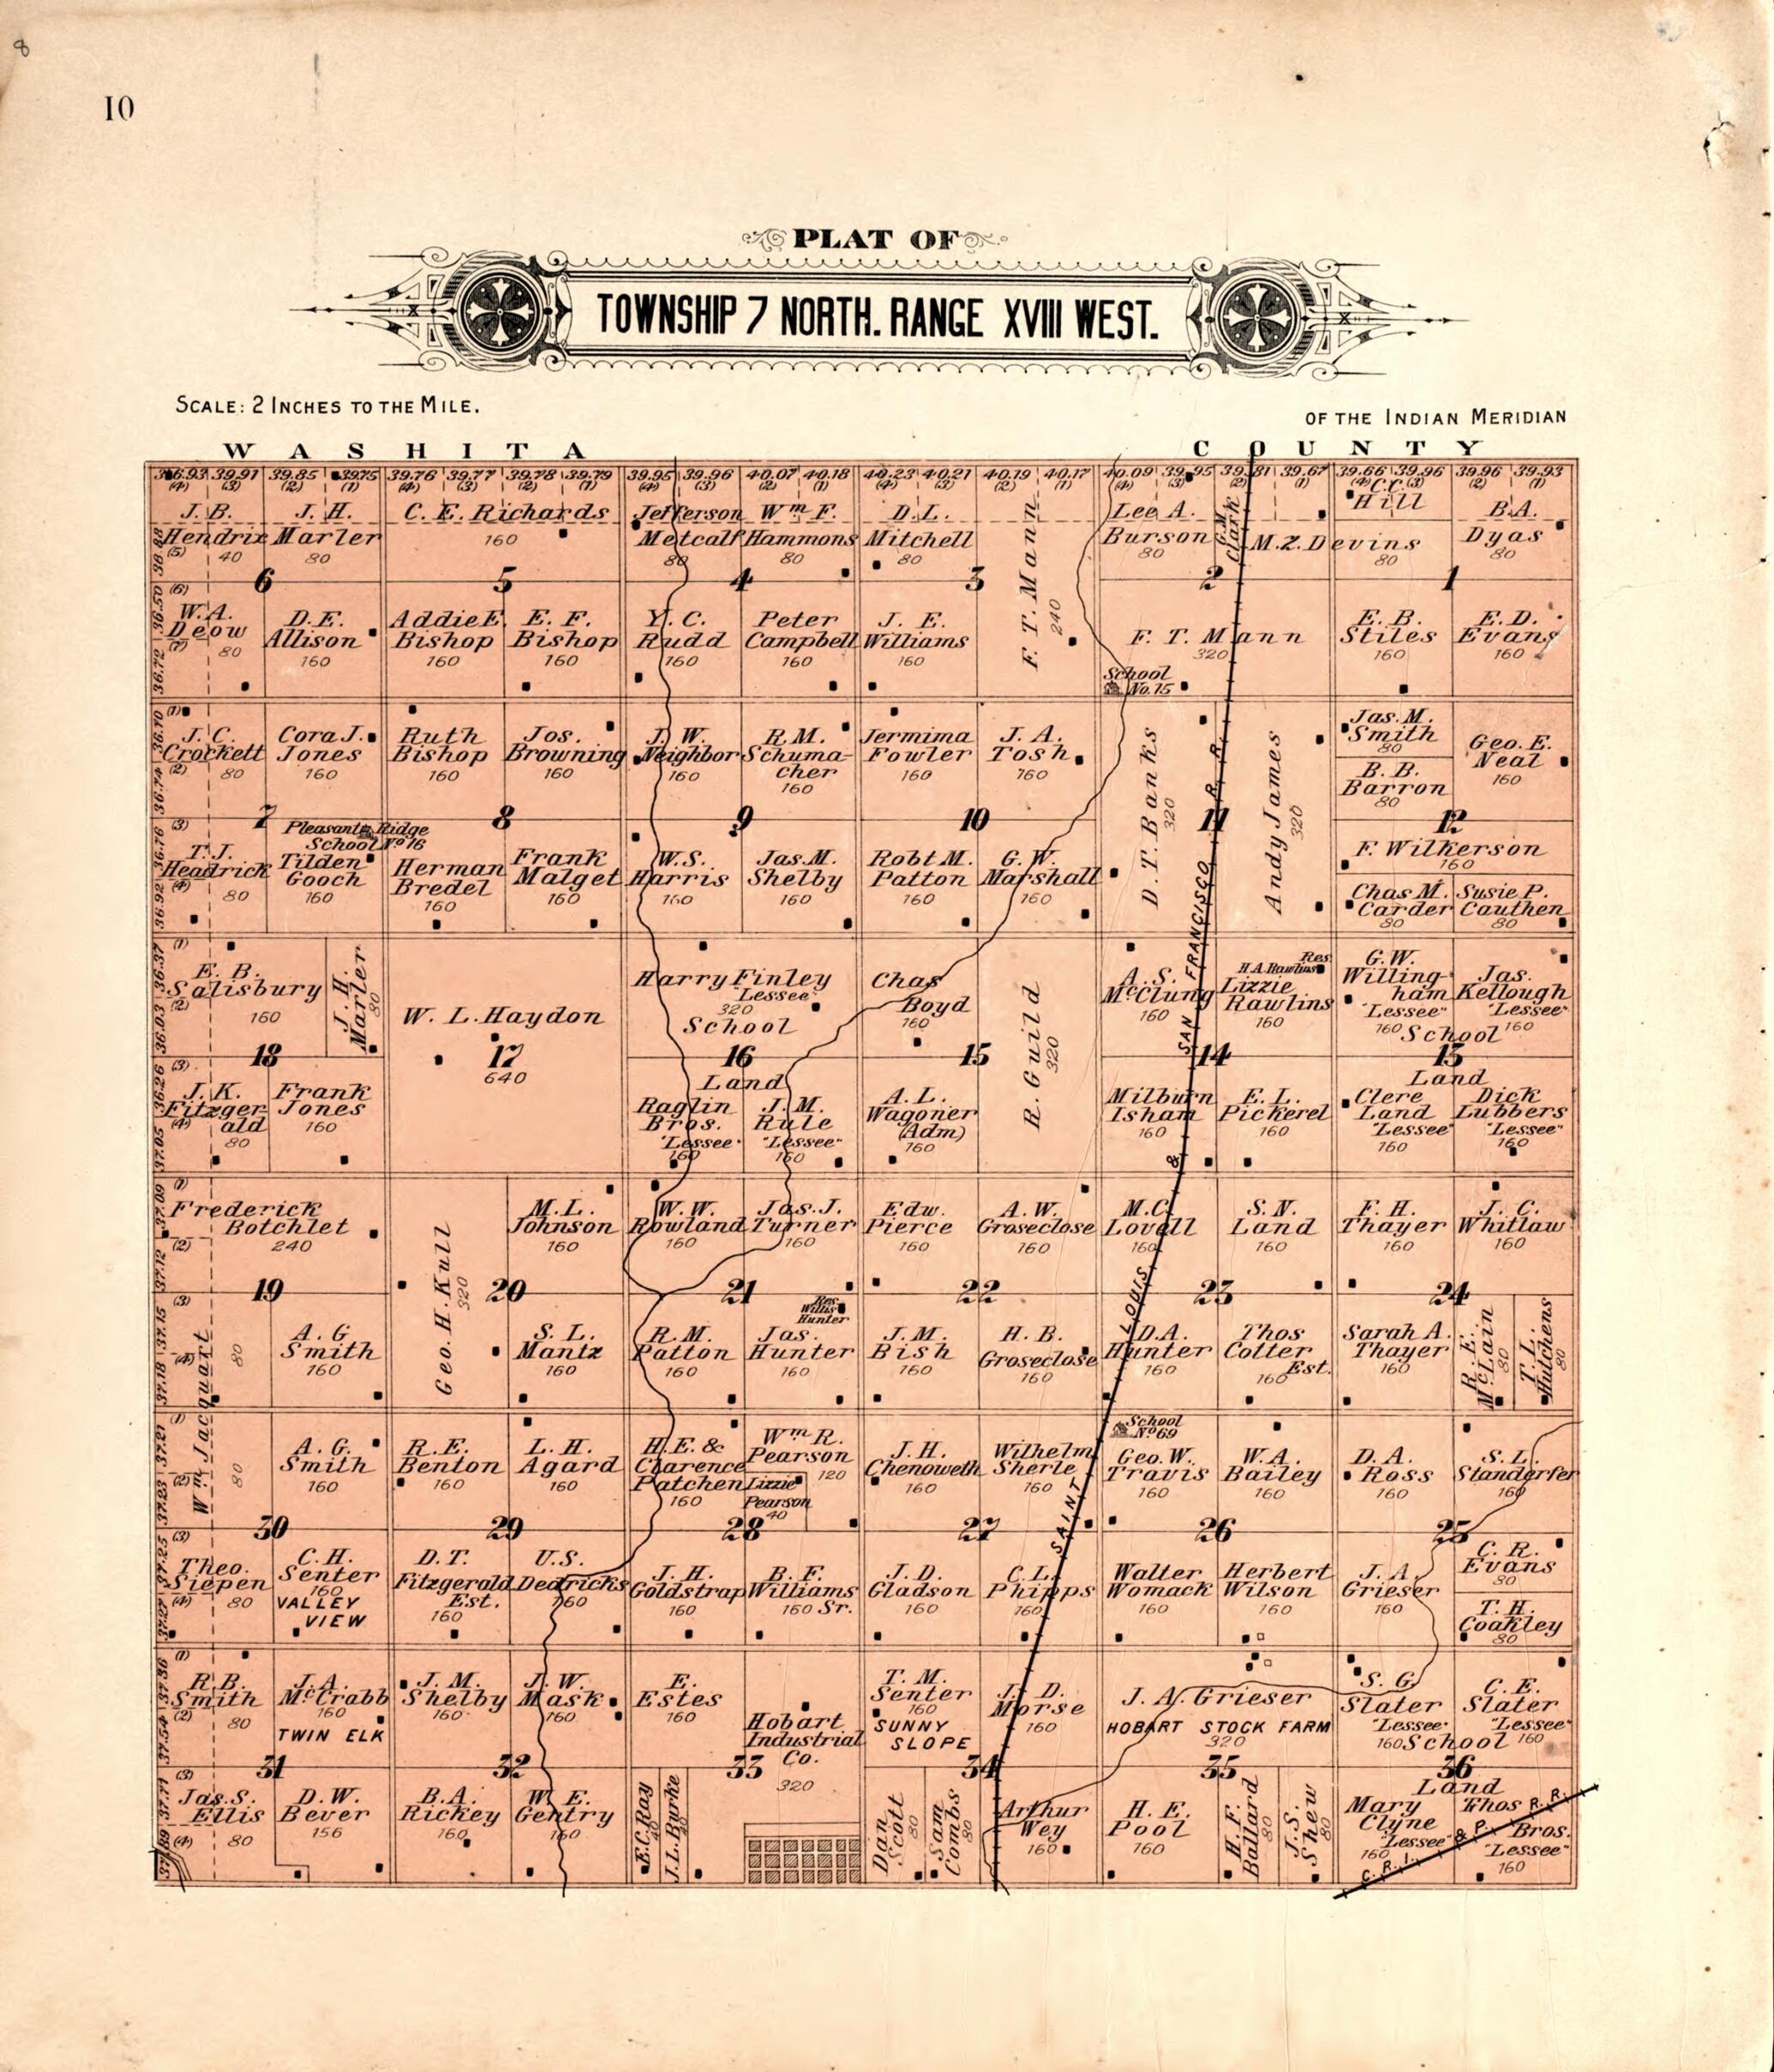 8
10
PLAT OF
TOWNSHIP 7 NORTH. RANGE XVIII WEST.
SCALE: 2 INCHES TO THE MILE.
OF THE INDIAN MERIDIAN
WASHITA COUNTY
39.91 39.85 39.75 39.76 39.77 39.78 39.79 39.95 39.96 40.07 40.18 40.23 40.21 40.19 40.17 40.09 39.95 39.81 39.67 39.66 39.96 39.96 39.93
(4) (3) (2) (1) (4) (3) (2) (1) (4) (3) (2) (1) (4) (3) (2) (1) (4) (3) (2) (1) (4) (3) (2) (1)
J. B. Hendrix 40
J. H. Marler 80
C. E. Richards 160
Jefferson Metcalf 80
Wm F. Hammons 80
D. L. Mitchell 80
F. T. Mann 240
Lee A. Burson 80
G. M. Clark
M. Z. Devins 80
C. C. Hill
B. A. Dyas 80
6 5 4 3 2 1
W. A. Deow 80
D. E. Allison 160
Addie E. Bishop 160
E. F. Bishop 160
Y. C. Rudd 160
Peter Campbell 160
J. E. Williams 160
F. T. Mann 320
School No. 75
E. B. Stiles 160
E. D. Evans 160
J. C. Crockett 80
Cora J. Jones 160
Ruth Bishop 160
Jos. Browning 160
J. W. Neighbor 160
R. M. Schumacher 160
Jermima Fowler 160
J. A. Tosh 160
D. T. Banks 320
Andy James 320
Jas. M. Smith 80
B. B. Barron 80
Geo. E. Neal 160
7 8 9 10 11 12
Pleasant Ridge School No 16
T. J. Headrick 80
Tilden Gooch 160
Herman Bredel 160
Frank Malget 160
W. S. Harris 160
Jas. M. Shelby 160
Robt M. Patton 160
G. W. Marshall 160
F. Wilkerson 160
Chas M. Carder 80
Susie P. Cauthen 80
E. B. Salisbury 160
J. H. Marler 80
W. L. Haydon 640
Harry Finley "Lessee" 320
School Land
Chas Boyd 160
R. Guild 320
A. S. McClung 160
Res H. A. Rawlins
Lizzie Rawlins 160
G. W. Willingham "Lessee" 160
Jas. Kellough "Lessee" 160
School Land
18 17 16 15 14 13
J. K. Fitzgerald 80
Frank Jones 160
Raglin Bros. "Lessee" 160
J. M. Rule "Lessee" 160
A. L. Wagoner (Adm) 160
Milburn Isham 160
E. L. Pickerel 160
Clere Land "Lessee" 160
Dick Lubbers "Lessee" 160
Frederick Botchlet 240
Geo. H. Kull 320
M. L. Johnson 160
W. W. Rowland 160
Jas. J. Turner 160
Edw. Pierce 160
A. W. Groseclose 160
M. C. Lovell 160
S. N. Land 160
F. H. Thayer 160
J. C. Whitlaw 160
19 20 21 22 23 24
Wm Jacquart 80 80
A. G Smith 160
S. L. Mantz 160
R. M. Patton 160
Res Willis Hunter
Jas. Hunter 160
J. M. Bish 160
H. B. Groseclose 160
D. A. Hunter 160
Thos Cotter Est. 160
Sarah A. Thayer 160
R. E. McLain 80
T. L. Hutchens 80
A. G. Smith 160
R. E. Benton 160
L. H. Agard 160
H. E. & Clarence Patchen 160
Wm R. Pearson 120
Lizzie Pearson 40
J. H. Chenoweth 160
Wilhelm Sherle 160
School No 69
Geo. W. Travis 160
W. A. Bailey 160
D. A. Ross 160
S. L. Standerfer 160
30 29 28 27 26 25
Theo. Siepen 80
C. H. Senter 160
VALLEY VIEW
D. T. Fitzgerald Est. 160
U. S. Dedricks 160
J. H. Goldstrap 160
B. F. Williams Sr. 160
J. D. Gladson 160
C. L. Phipps 160
Walter Womack 160
Herbert Wilson 160
J. A. Grieser 160
C. R. Evans 80
T. H. Coakley 80
R. B. Smith 80
J. A. McCrabb 160
TWIN ELK
J. M. Shelby 160
J. W. Mask 160
E. Estes 160
Hobart Industrial Co. 320
T. M. Senter 160
SUNNY SLOPE
J. D. Morse 160
J. A. Grieser
HOBART STOCK FARM 320
S. G. Slater "Lessee" 160
C. E. Slater "Lessee" 160
School Land
31 32 33 34 35 36
Jas. S. Ellis 80
D. W. Bever 156
B. A. Rickey 160
W. E. Gentry 160
E. C. Ray 40
J. L. Burke 40
Dan Scott 80
Sam Combs 80
Arthur Wey 160
H. E. Pool 160
H. F. Ballard 80
J. S. Shew 80
Mary Clyne "Lessee" 160
Thos Bros. "Lessee" 160
SAINT LOUIS & SAN FRANCISCO R. R.
C. R. I. & P. R. R.